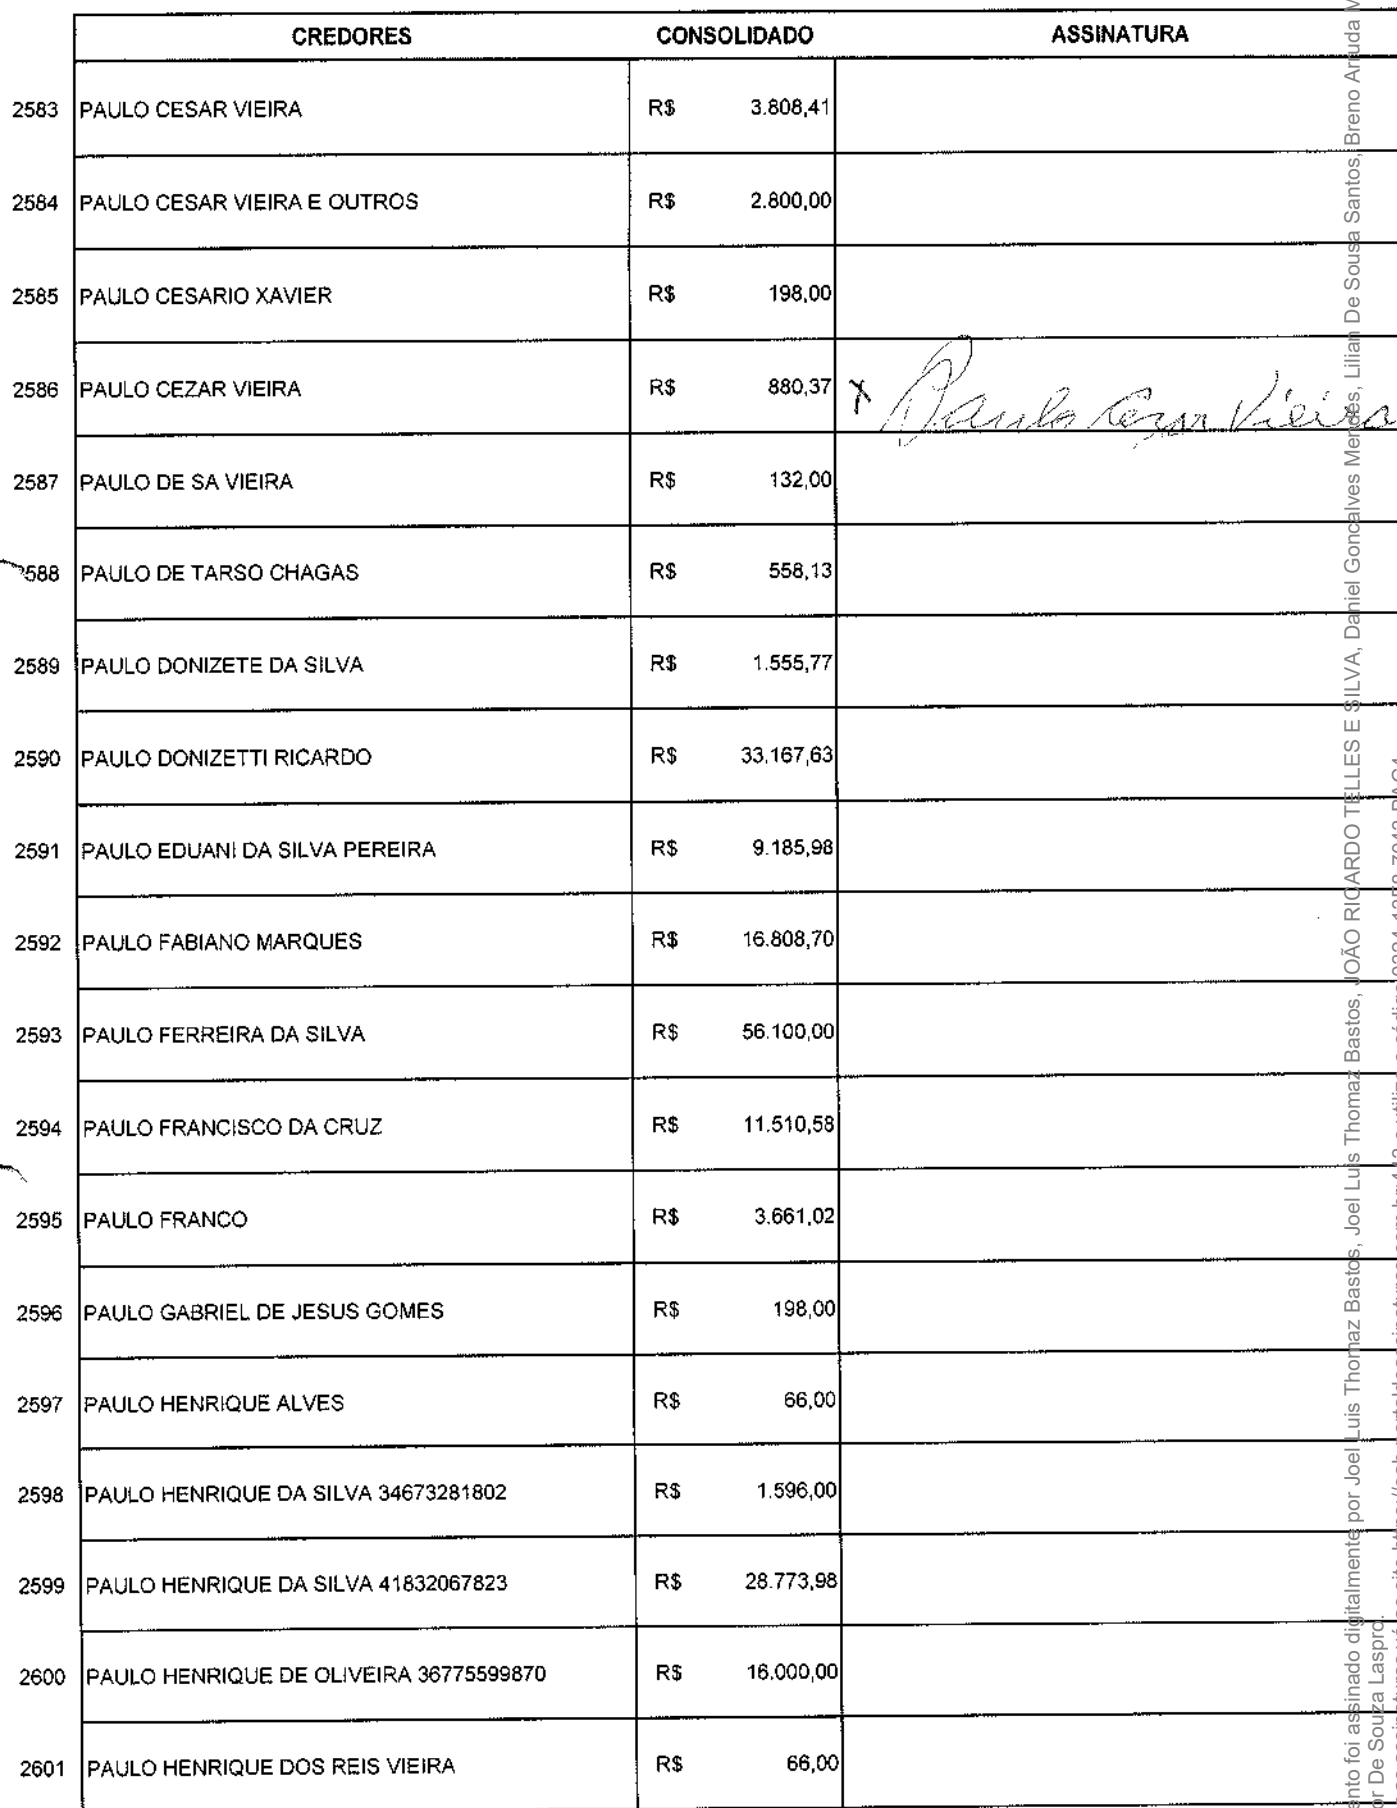 CREDORES CONSOLIDADO ASSINATURA
2583 PAULO CESAR VIEIRA R$ 3.808,41
2584 PAULO CESAR VIEIRA E OUTROS R$ 2.800,00
2585 PAULO CESARIO XAVIER R$ 198,00
2586 PAULO CEZAR VIEIRA R$ 880,37 X Paulo Cezar Vieira
2587 PAULO DE SA VIEIRA R$ 132,00
2588 PAULO DE TARSO CHAGAS R$ 558,13
2589 PAULO DONIZETE DA SILVA R$ 1.555,77
2590 PAULO DONIZETTI RICARDO R$ 33.167,63
2591 PAULO EDUANI DA SILVA PEREIRA R$ 9.185,98
2592 PAULO FABIANO MARQUES R$ 16.808,70
2593 PAULO FERREIRA DA SILVA R$ 56.100,00
2594 PAULO FRANCISCO DA CRUZ R$ 11.510,58
2595 PAULO FRANCO R$ 3.661,02
2596 PAULO GABRIEL DE JESUS GOMES R$ 198,00
2597 PAULO HENRIQUE ALVES R$ 66,00
2598 PAULO HENRIQUE DA SILVA 34673281802 R$ 1.596,00
2599 PAULO HENRIQUE DA SILVA 41832067823 R$ 28.773,98
2600 PAULO HENRIQUE DE OLIVEIRA 36775599870 R$ 16.000,00
2601 PAULO HENRIQUE DOS REIS VIEIRA R$ 66,00
foi assinado digitalmente por Joel Luis Thomaz Bastos, Joel Luis Thomaz Bastos, JOÃO RICARDO TELLES E SILVA, Daniel Goncalves Mendes, Lilian De Sousa Santos, Breno Arruda
De Souza Laspro.